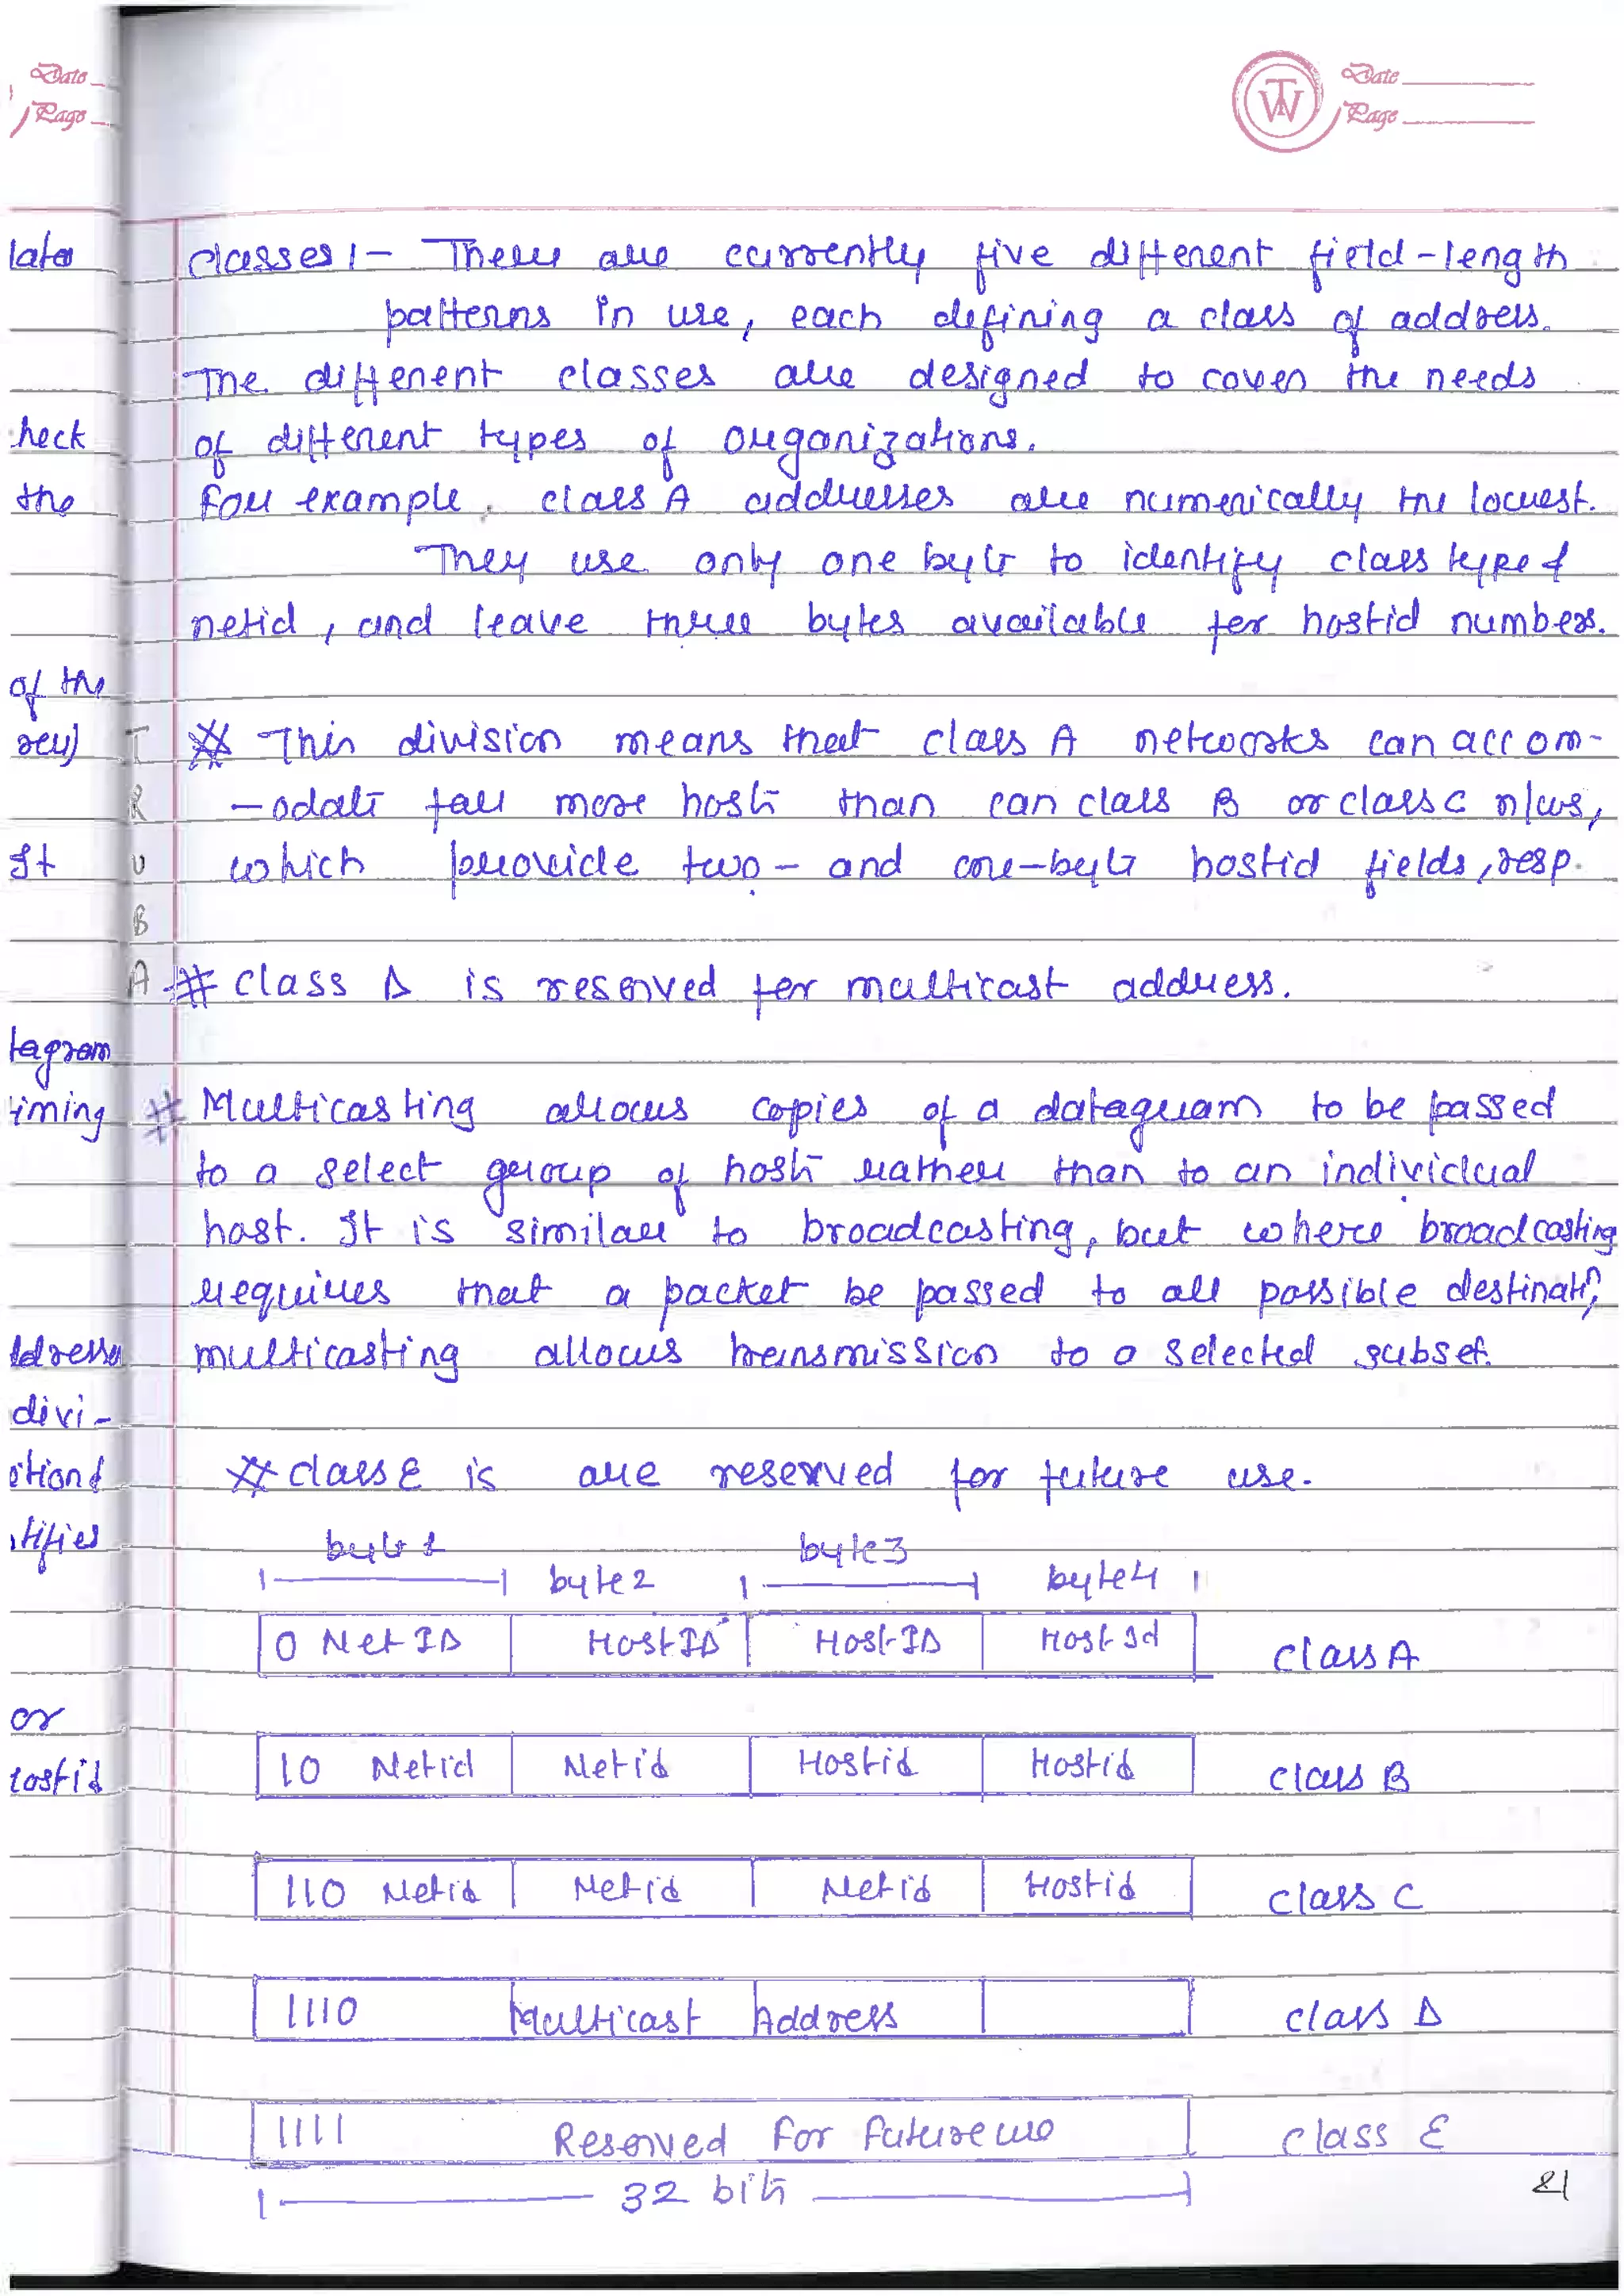 Date
Page
TW
Date
Page
late
heck
the
of the
rey)
It
tagram
timing
ddresses
divi-
ction &
tifies
or
hostid
T
R
U
B
A
Classes :- There are currently five different field-length
patterns in use, each defining a class of address.
The different classes are designed to cover the needs
of different types of organizations.
For example, class A addresses are numerically the lowest.
They use only one byte to identify class type &
netid, and leave three bytes available for hostid numbers.
# This division means that class A networks can accom-
-odate far more hosts than can class B or class C n/ws,
which provide two- and one-byte hostid fields, resp.
# Class D is reserved for multicast address.
# Multicasting allows copies of a datagram to be passed
to a select group of hosts rather than to an individual
host. It is similar to broadcasting, but where broadcasting
requires that a packet be passed to all possible destinatn,
multicasting allows transmission to a selected subset.
# class E is are reserved for future use.
byte 1 byte2 byte3 byte4
0 Net ID Host ID Host-ID Host Id class A
10 Netid Netid Hostid Hostid class B
110 Netid Netid Netid Hostid class C
1110 Multicast Address class D
1111 Reserved For Future use class E
32 bits
21